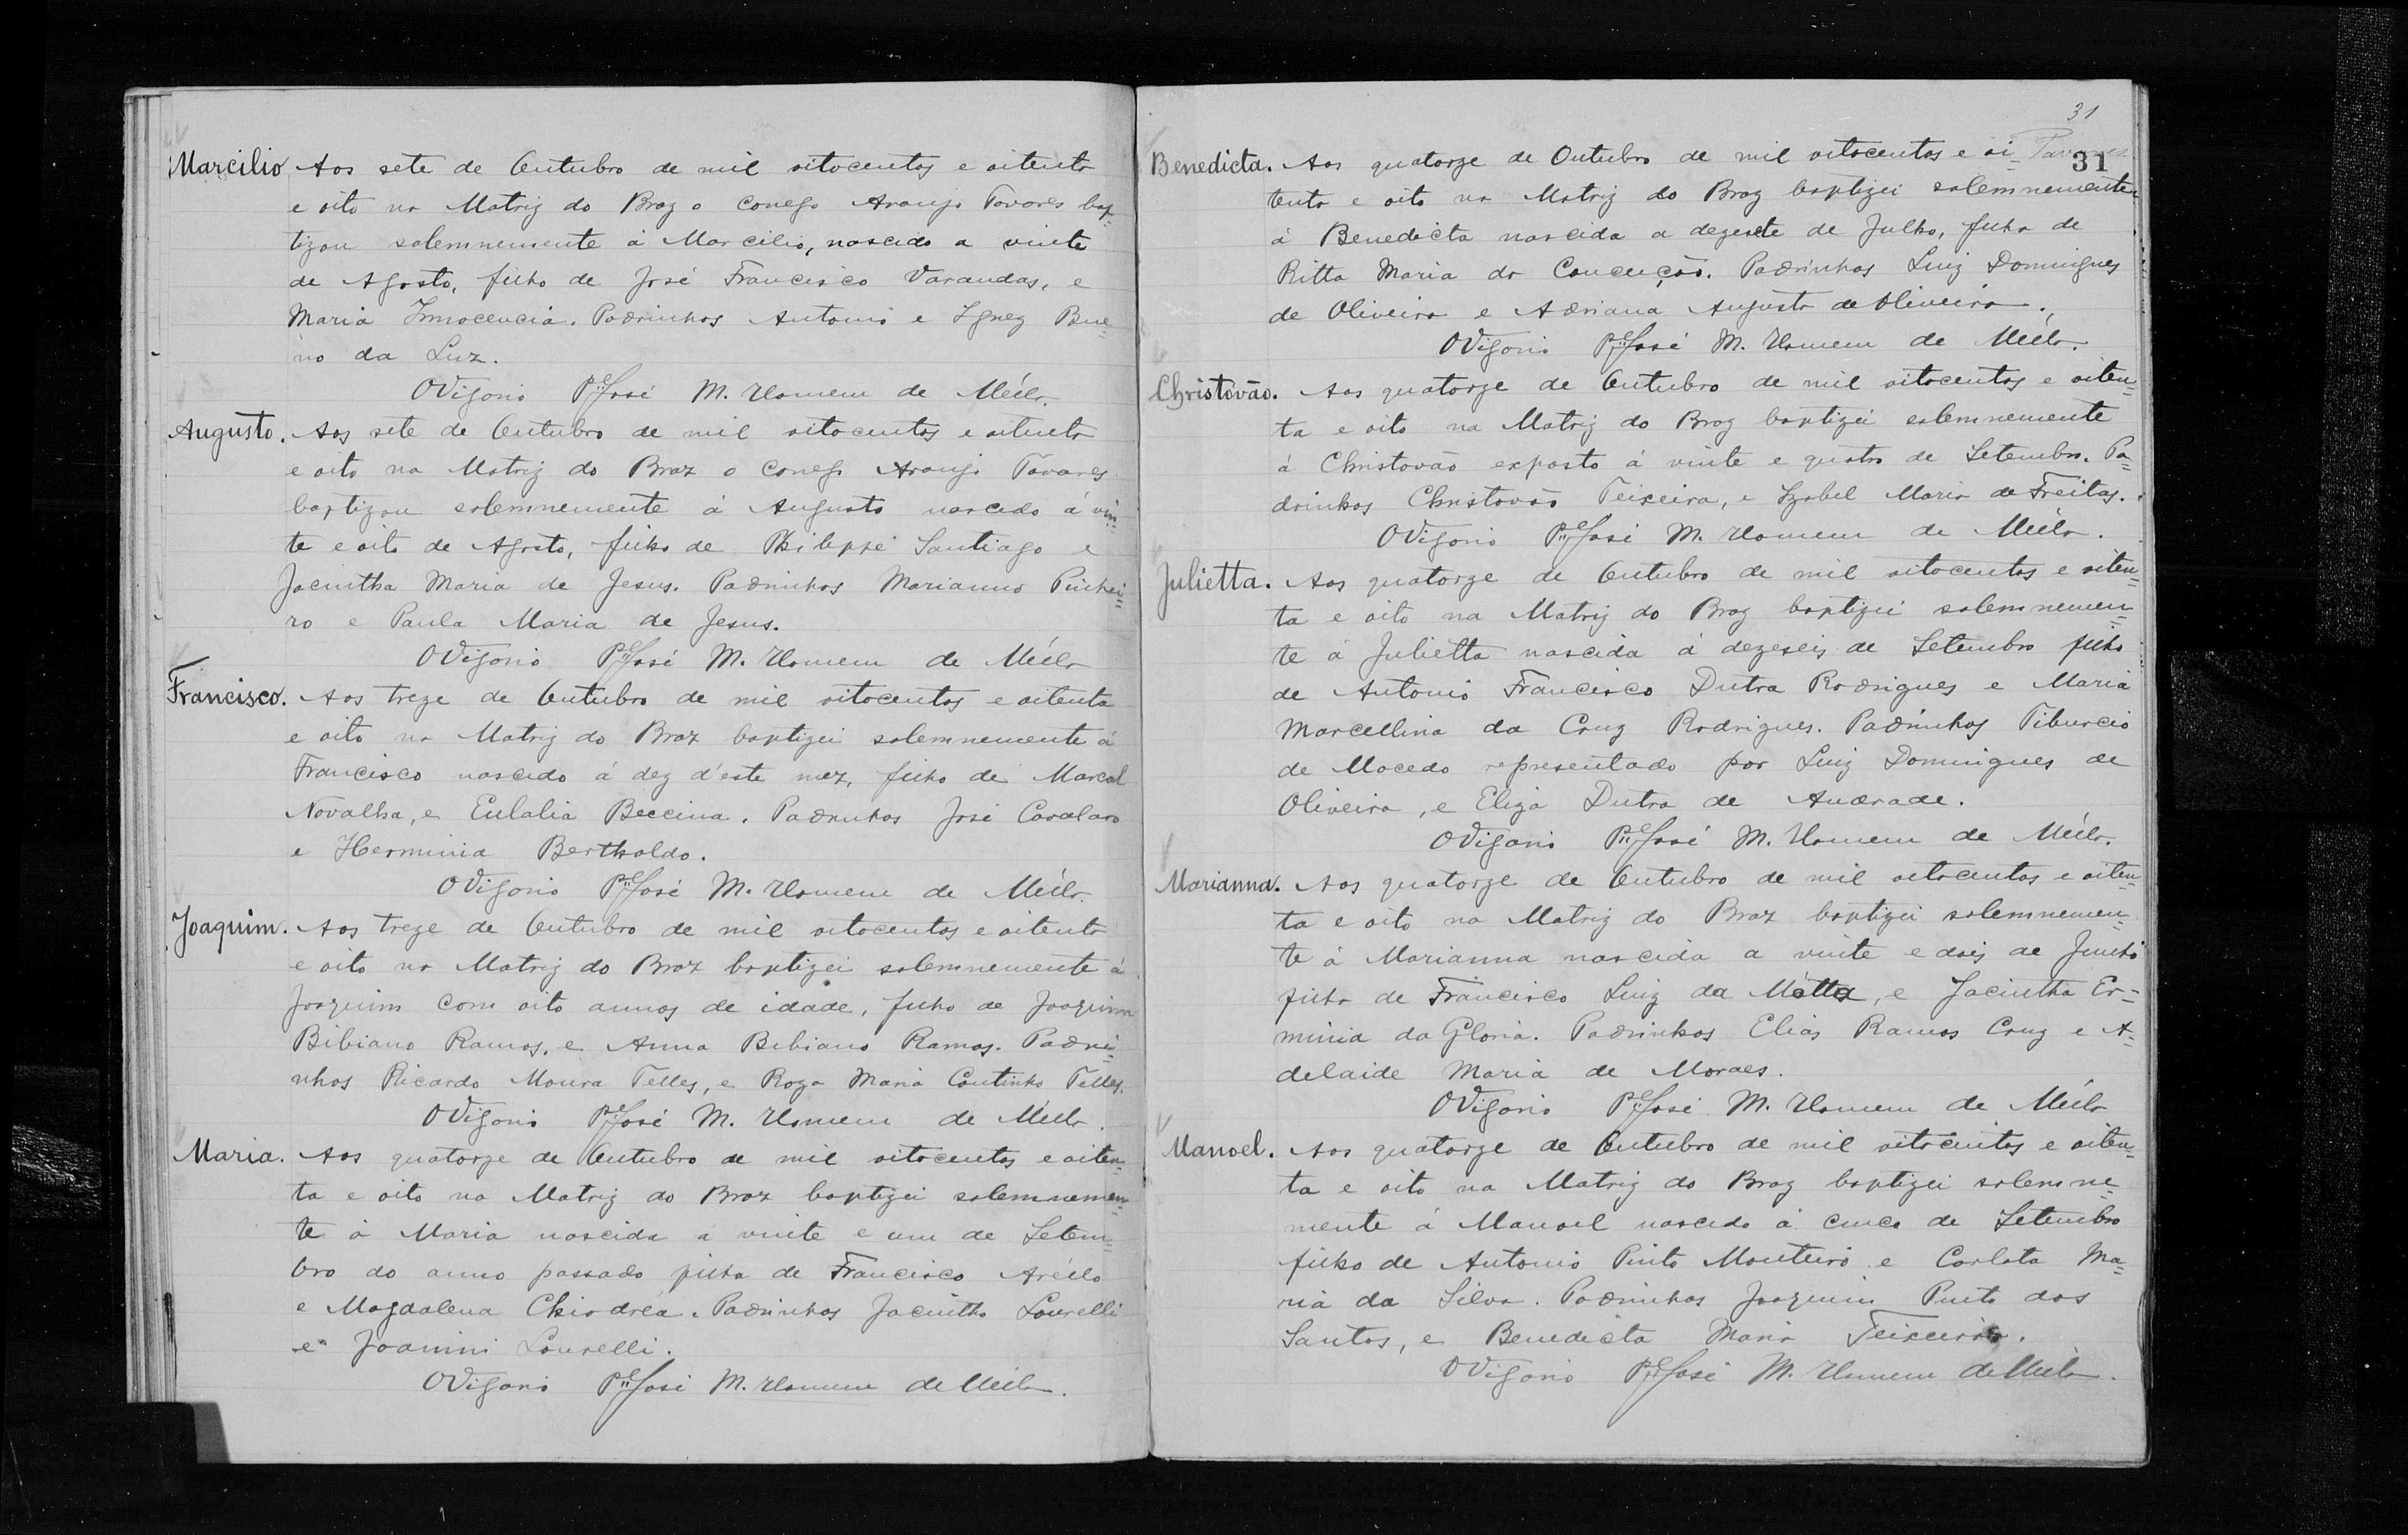 Marcilio Aos sete de Outubro de mil oitocentos e oitenta
e oito na Matriz do Braz o conego Araujo Tavares bap=
tizou solemnemente á Marcilio, nascido a vinte
de Agosto, filho de José Francisco Varandas, e
Maria Innocencia. Padrinhos Antonio e Ignez Bue=
no da Luz.
O Vigario Pe José M. Homem de Méllo.
Augusto. Aos sete de Outubro de mil oitocentos e oitenta
e oito na Matriz do Braz o conego Araujo Tavares
baptizou solemnemente á Augusto nascido á vin=
te e oito de Agosto, filho de Philippe Santiago e
Jacintha Maria de Jesus. Padrinhos Marianno Pinhei=
ro e Paula Maria de Jesus.
O Vigario Pe José M. Homem de Méllo
Francisco. Aos treze de Outubro de mil oitocentos e oitenta
e oito na Matriz do Braz baptizei solemnemente á
Francisco nascido á dez d'este mez, filho de Marcal
Novalha, e Eulalia Beccina. Padrinhos José Cavalaro
e Herminia Bertholdo.
O Vigario Pe José M. Homem de Méllo.
Joaquim. Aos treze de Outubro de mil oitocentos e oitenta
e oito na Matriz do Braz baptizei solemnemente á
Joaquim com oito annos de idade, filho de Joaquim
Bibiano Ramos, e Anna Bibiano Ramos. Padri=
nhos Ricardo Moura Telles, e Roza Maria Coutinho Telles.
O Vigario Pe José M. Homem de Méllo.
Maria. Aos quatorze de Outubro de mil oitocentos e oiten=
ta e oito na Matriz do Braz baptizei solemnemen=
te á Maria nascida a vinte e um de Setem=
bro do anno passado filha de Francisco Aréllo
e Magdalena Chiodréa. Padrinhos Jacintho Lourelli
e Joanini Lourelli.
O Vigario Pe José M. Homem de Méllo.
31
31
Benedicta. Aos quatorze de Outubro de mil oitocentos e oi= Tavares
tenta e oito na Matriz do Braz baptizei solemnemente
á Benedicta nascida a dezesete de Julho, filha de
Ritta Maria da Conceição. Padrinhos Luiz Domingues
de Oliveira e Adriana Augusta de Oliveira.
O Vigario Pe José M. Homem de Méllo.
Christovão. Aos quatorze de Outubro de mil oitocentos e oiten=
ta e oito na Matriz do Braz baptizei solemnemente
á Christovão exposto á vinte e quatro de Setembro. Pa=
drinhos Christovão Teixeira, e Izabel Maria de Freitas.
O Vigario Pe José M. Homem de Méllo.
Julietta. Aos quatorze de Outubro de mil oitocentos e oiten=
ta e oito na Matriz do Braz baptizei solemnemen=
te á Julietta nascida á dezeseis de Setembro filha
de Antonio Francisco Dutra Rodrigues e Maria
Marcellina da Cruz Rodrigues. Padrinhos Tiburcio
de Macedo representado por Luiz Domingues de
Oliveira, e Eliza Dutra de Andrade.
O Vigario Pe José M. Homem de Méllo.
Marianna. Aos quatorze de Outubro de mil oitocentos e oiten=
ta e oito na Matriz do Braz baptizei solemnemen=
te á Marianna nascida a vinte e dois de Junho
filha de Francisco Luiz da Mótta, e Jacintha Er=
minia da Gloria. Padrinhos Elias Ramos Cruz e A=
delaide Maria de Moraes.
O Vigario Pe José M. Homem de Méllo
Manoel. Aos quatorze de Outubro de mil oitocentos e oiten=
ta e oito na Matriz do Braz baptizei solemne=
mente á Manoel nascido á cinco de Setembro
filho de Antonio Pinto Monteiro e Carlota Ma=
ria da Silva. Padrinhos Joaquim Pinto dos
Santos, e Benedicta Maria Teixeira.
O Vigario Pe José M. Homem de Méllo.